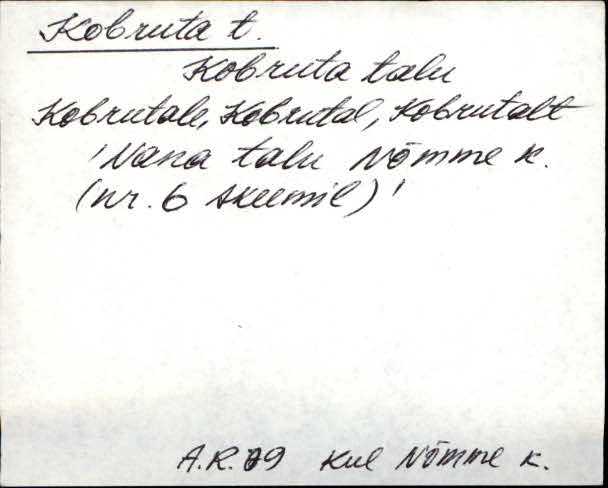 Kobruta t.
Kobruta talu
Kobrutale, Kobrutal, Kobrutalt
'Vana talu Nõmme k.
(nr. 6 skeemil)'
A.R. 69 Kul Nõmme k.